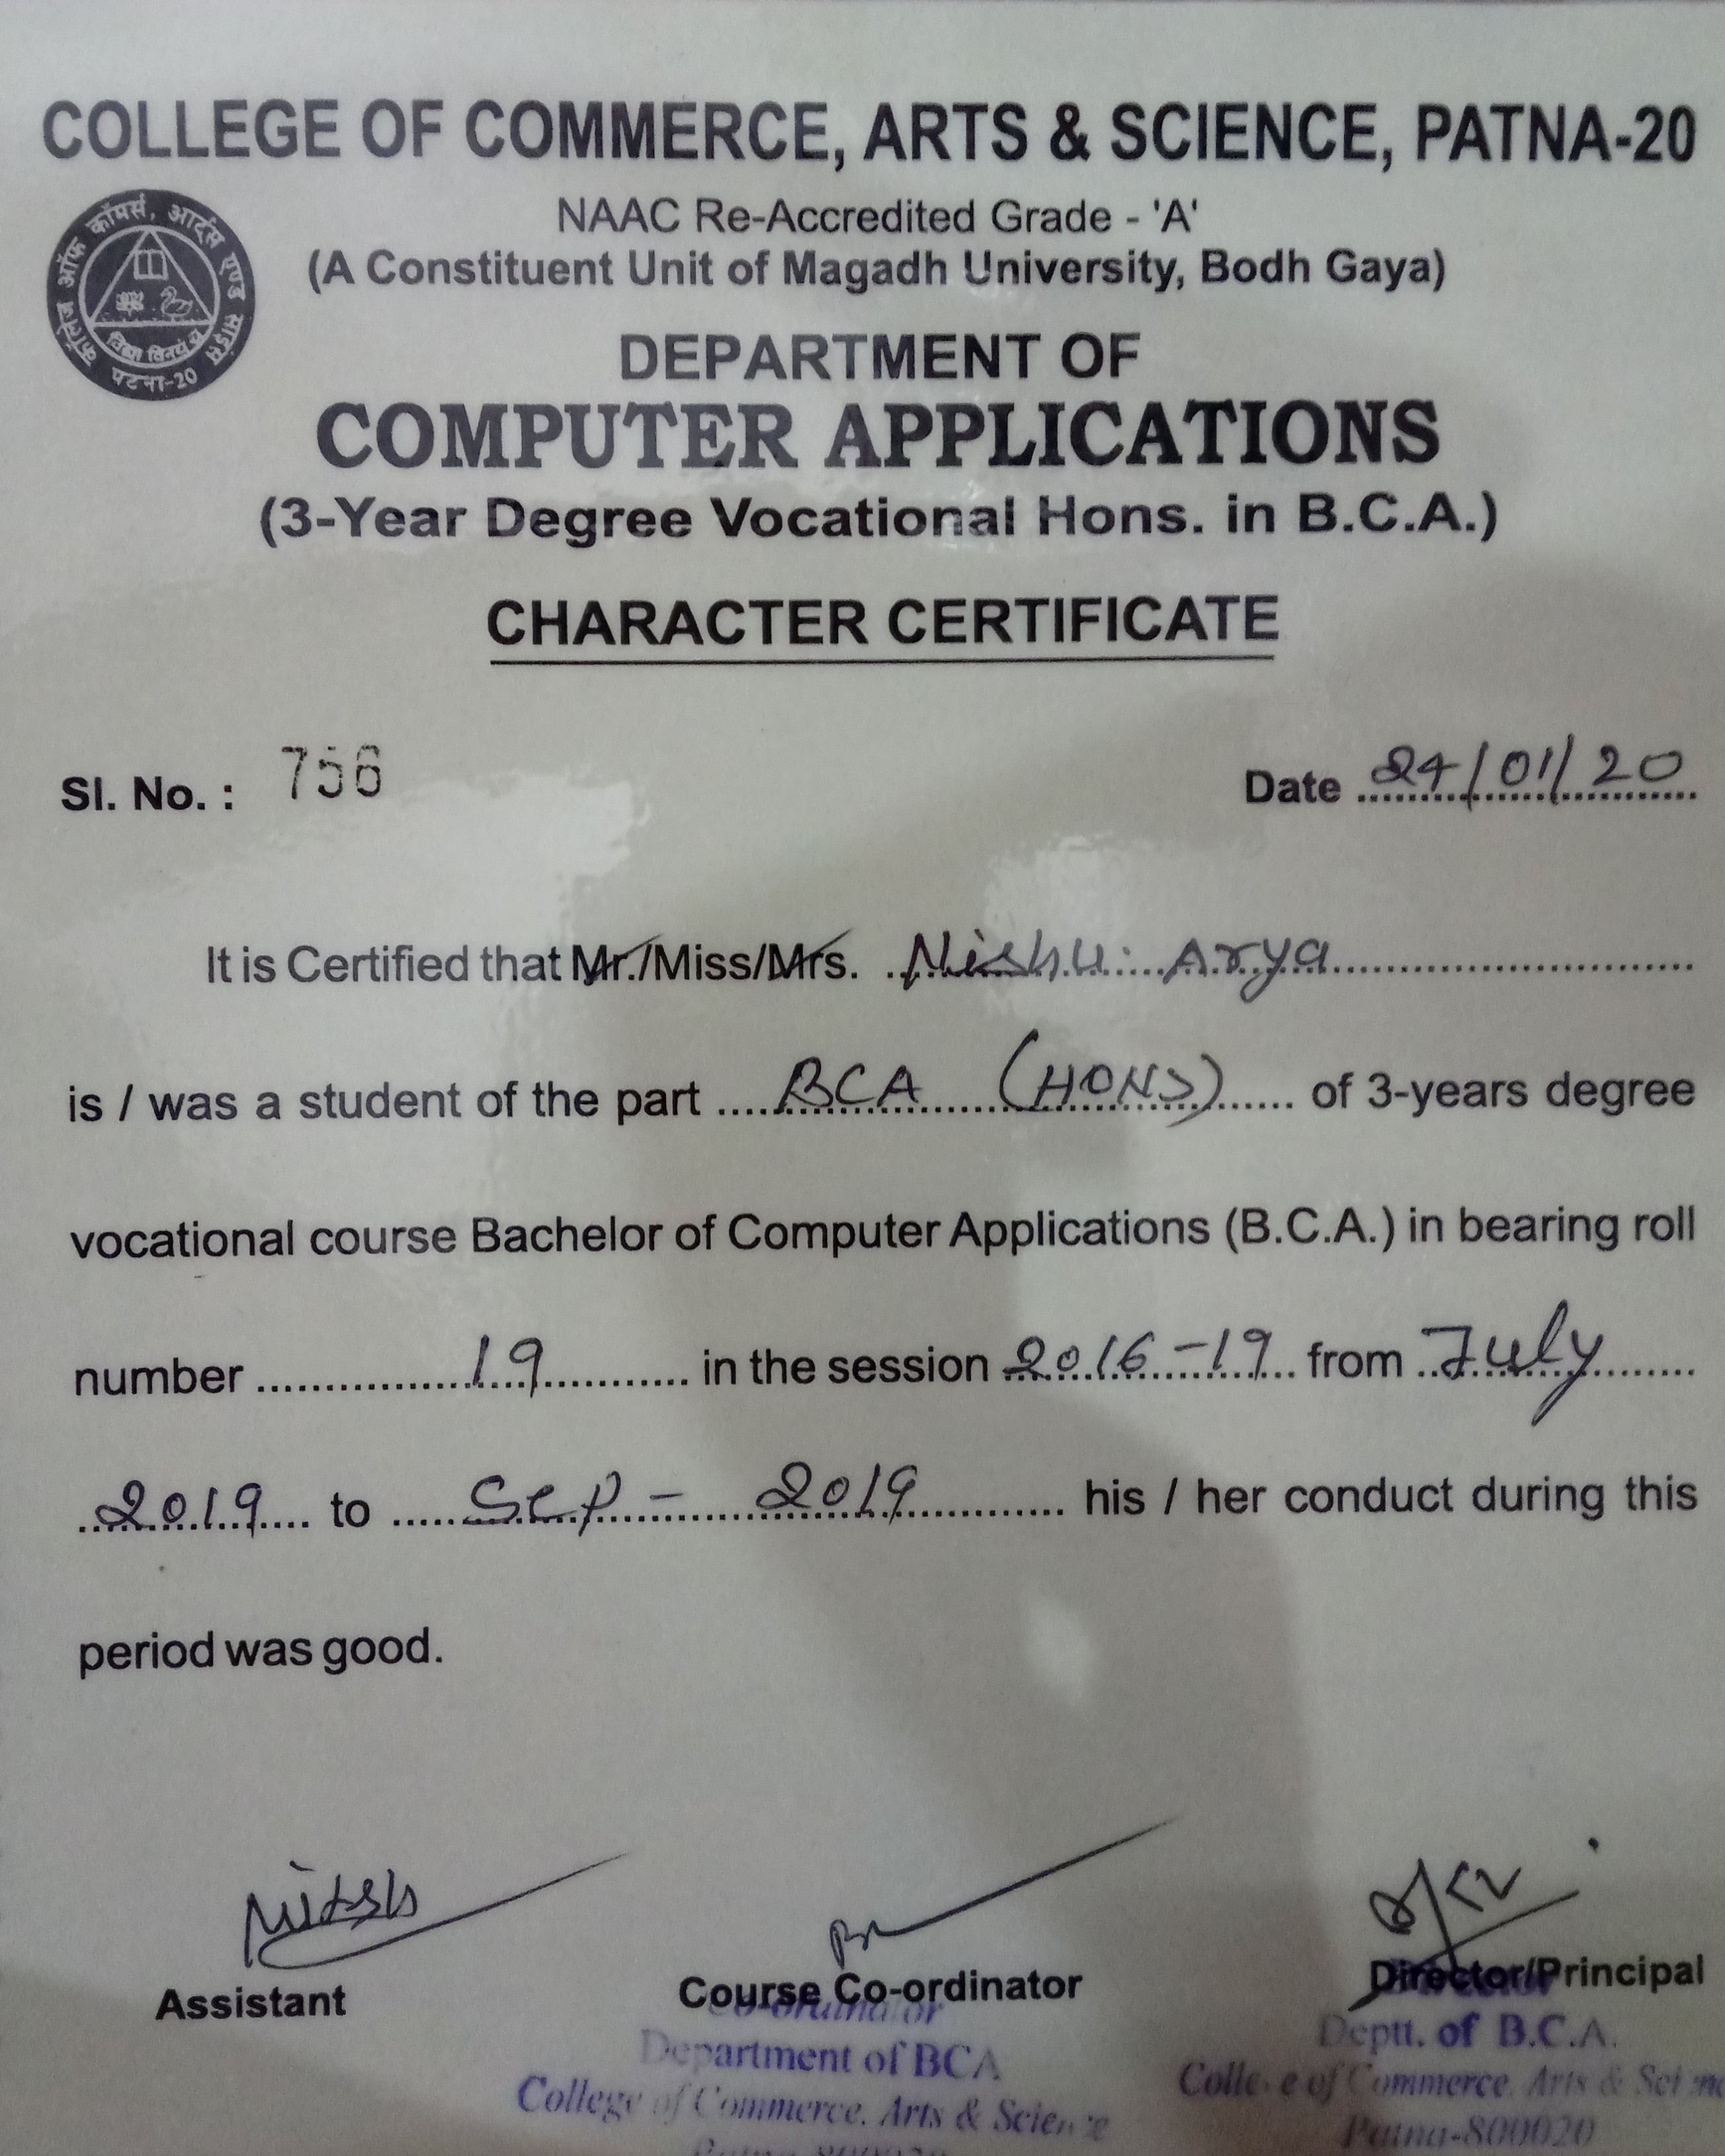 COLLEGE OF COMMERCE, ARTS & SCIENCE, PATNA-20
कॉलेज ऑफ कॉमर्स, आर्ट्स एण्ड साइंस
विद्या विनयं च
पटना-20
NAAC Re-Accredited Grade - 'A'
(A Constituent Unit of Magadh University, Bodh Gaya)
DEPARTMENT OF
COMPUTER APPLICATIONS
(3-Year Degree Vocational Hons. in B.C.A.)
CHARACTER CERTIFICATE
Sl. No. : 756 Date 24/01/20
It is Certified that Mr./Miss/Mrs. Nishu Arya
is / was a student of the part BCA (HONS) of 3-years degree
vocational course Bachelor of Computer Applications (B.C.A.) in bearing roll
number 19 in the session 2016-19 from July
2019 to Sep - 2019 his / her conduct during this
period was good.
Nitesh
Assistant Course Co-ordinator Director/Principal
Co-ordinator
Department of BCA
College of Commerce, Arts & Science
Patna-800020
Director
Deptt. of B.C.A.
College of Commerce, Arts & Scienc
Patna-800020